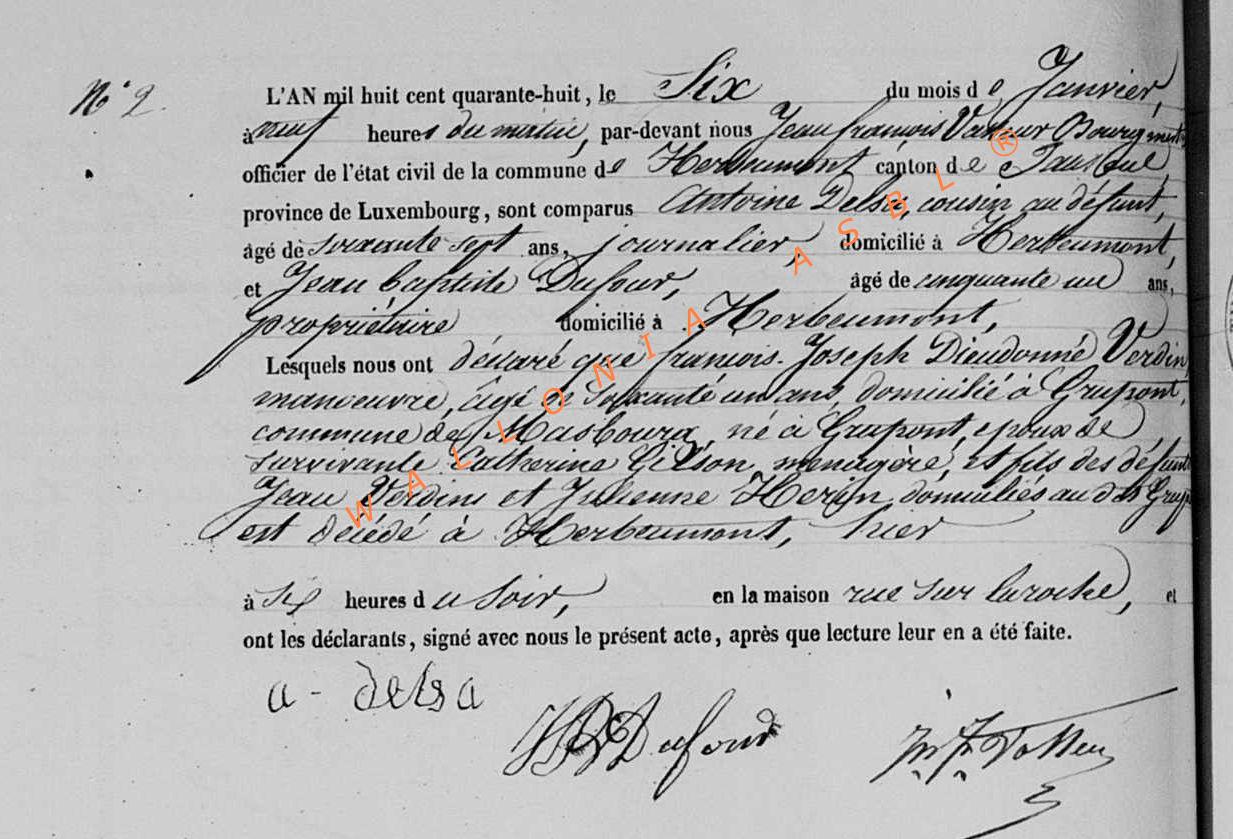 N° 2.
L'AN mil huit cent quarante-huit, le Six du mois de Janvier,
à neuf heures du matin, par-devant nous Jean françois Bourgmestre
officier de l'état civil de la commune de Herbeumont canton de
province de Luxembourg, sont comparus Antoine Delsa, cousin au défunt,
âgé de soixante sept ans, journalier, domicilié à Herbeumont,
et Jean baptiste Dufour, âgé de cinquante un ans,
propriétaire domicilié à Herbeumont,
Lesquels nous ont déclaré que françois-Joseph Dieudonné Verdin
manoeuvre, âgé de Soixante un ans, domicilié à Grupont,
commune de Masbourg, né à Grupont, epoux de
survivante Catherine Gilson, menagère, et fils des défunts
Jean Verdin et Julienne Herin, domiciliés au dit Grup
est décédé à Herbeumont, hier
à six heures du Soir, en la maison rue sur laroche, et
ont les déclarants, signé avec nous le présent acte, après que lecture leur en a été faite.
a - delsa
JB Dufour
WALLONIA ASBL ®